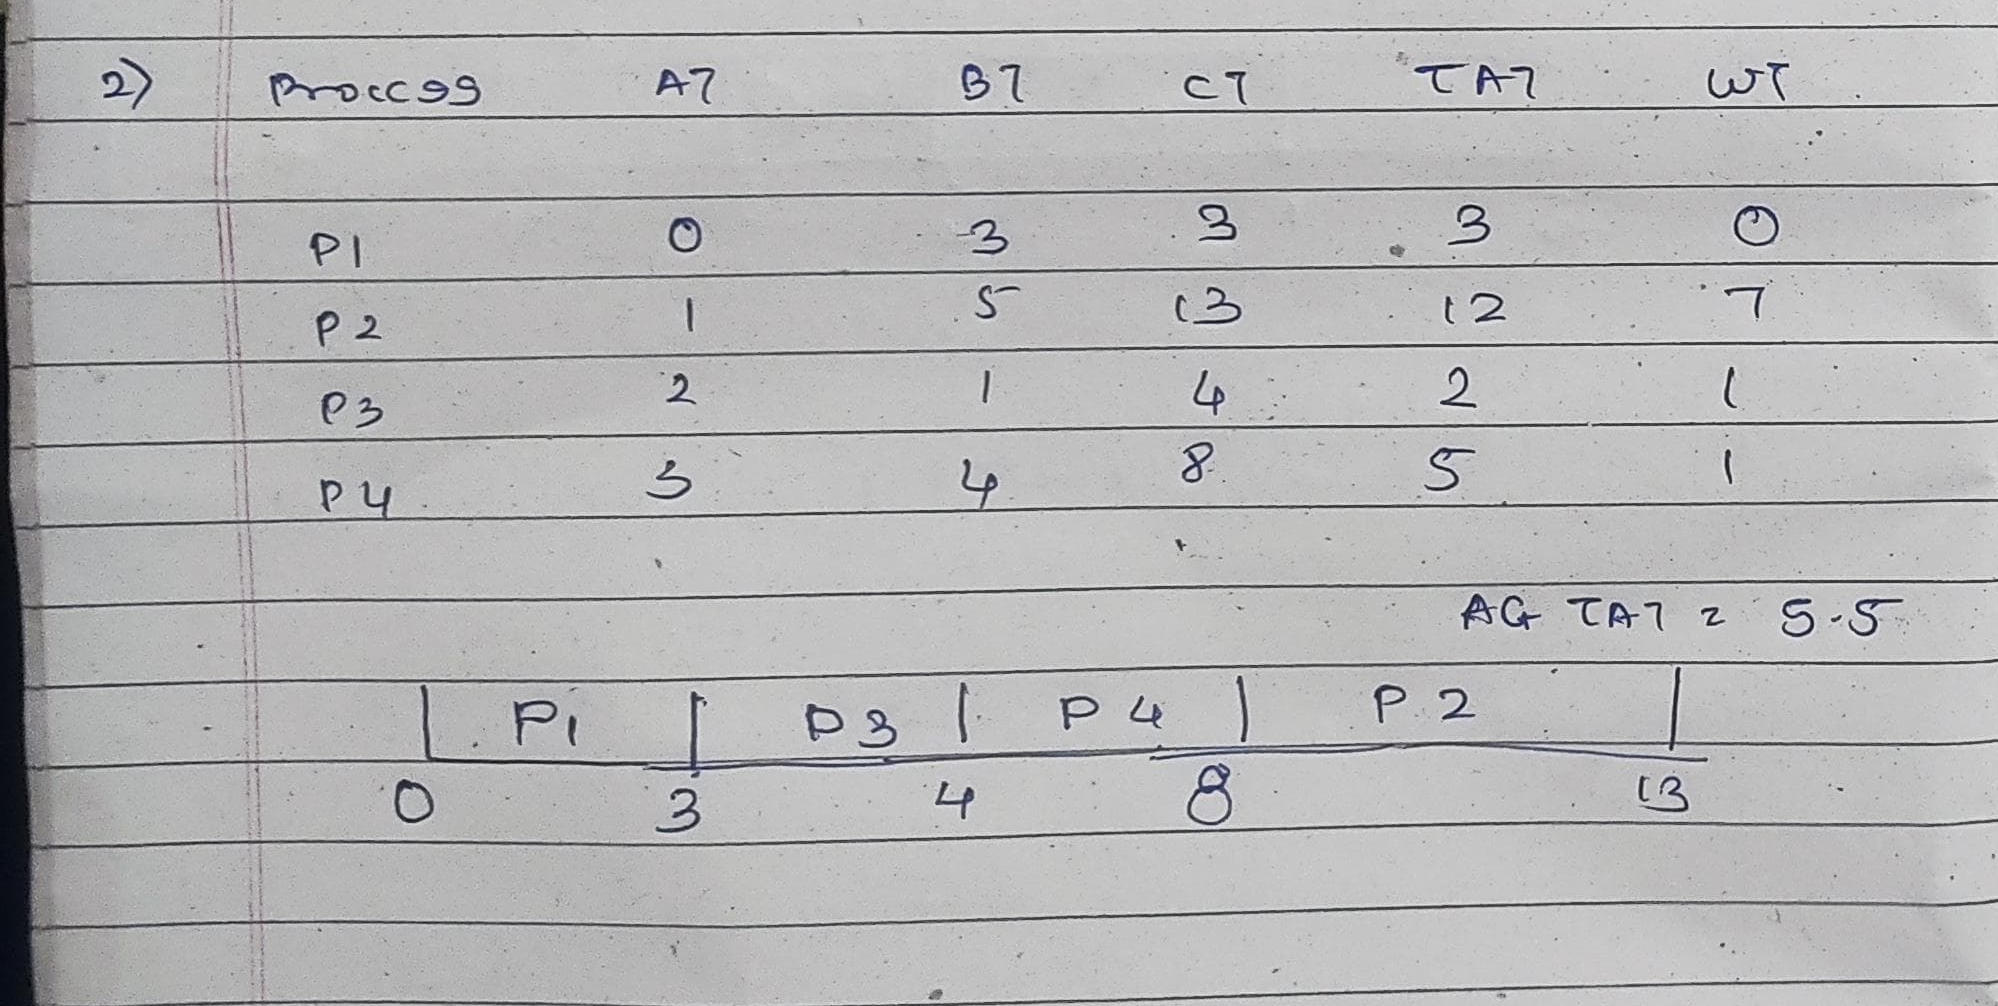 2) Proccss AT BT CT TAT WT
P1 0 3 3 3 0
P2 1 5 13 12 7
P3 2 1 4 2 1
P4 3 4 8 5 1
AG TAT = 5.5
P1 P3 P4 P2
0 3 4 8 13